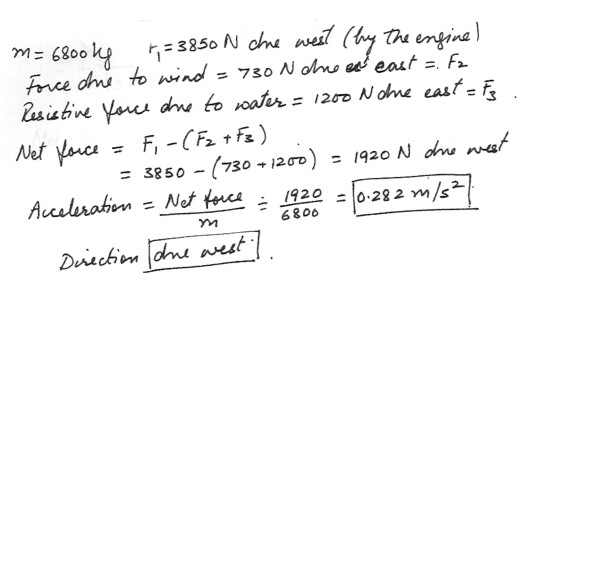 m = 6800 kg   F₁ = 3850 N due west (by the engine)
Force due to wind = 730 N due east = F₂
Resistive force due to water = 1200 N due east = F₃.
Net force = F₁ - (F₂ + F₃)
= 3850 - (730 + 1200) = 1920 N due west
Acceleration = Net force / m = 1920 / 6800 = 0.282 m/s²
Direction due west.